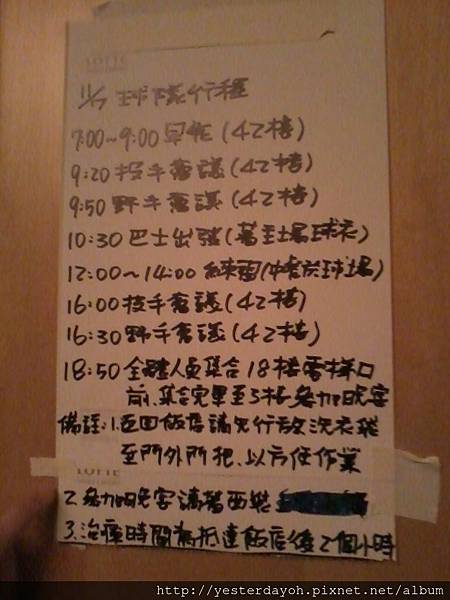 LOTTE
11/7 球隊行程
7:00~9:00 早餐(42樓)
9:20 投手會議(42樓)
9:50 野手會議(42樓)
10:30 巴士出發(著主場球衣)
12:00~14:00 練習(中餐於球場)
16:00 投手會議(42樓)
16:30 野手會議(42樓)
18:50 全體人員集合18樓電梯口
前、集合完畢至3樓參加晚宴
備註:1.返回飯店請先行放洗衣袋
至門外門把、以方便作業
LOTTE
2.參加晚宴請著西裝
3.治療時間為抵達飯店後2個小時
http://yesterdayoh.pixnet.net/album